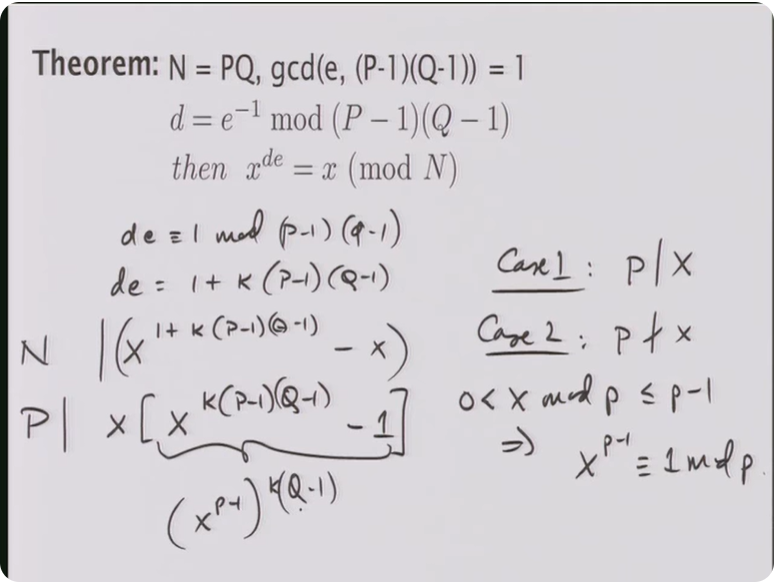 Theorem: N = PQ, gcd(e, (P-1)(Q-1)) = 1
d = e⁻¹ mod (P − 1)(Q − 1)
then x^{de} = x (mod N)
de ≡ 1 mod (P-1)(Q-1)
de = 1 + K(P-1)(Q-1)
N | (x^{1+K(P-1)(Q-1)} - x)
P | x[x^{K(P-1)(Q-1)} - 1]
(x^{P-1})^{K(Q-1)}
Case 1: P | X
Case 2: P ∤ x
0 < X mod p ≤ p-1
⇒ x^{p-1} ≡ 1 mod p.